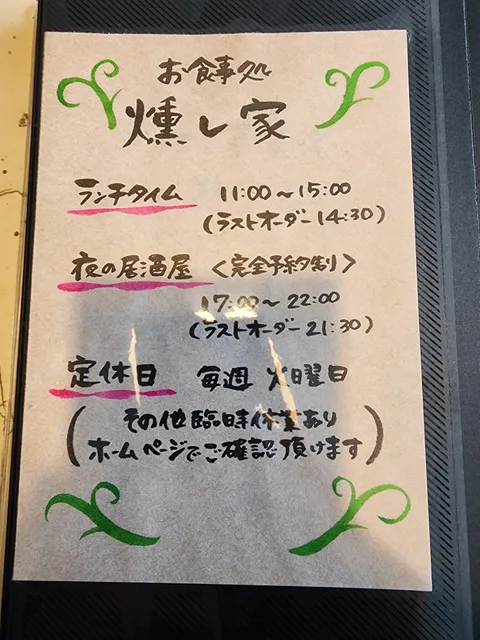 お食事処
燻し家
ランチタイム 11:00～15:00
(ラストオーダー14:30)
夜の居酒屋 <完全予約制>
17:00～22:00
(ラストオーダー21:30)
定休日 毎週 火曜日
(その他臨時休業あり
ホームページでご確認頂けます)